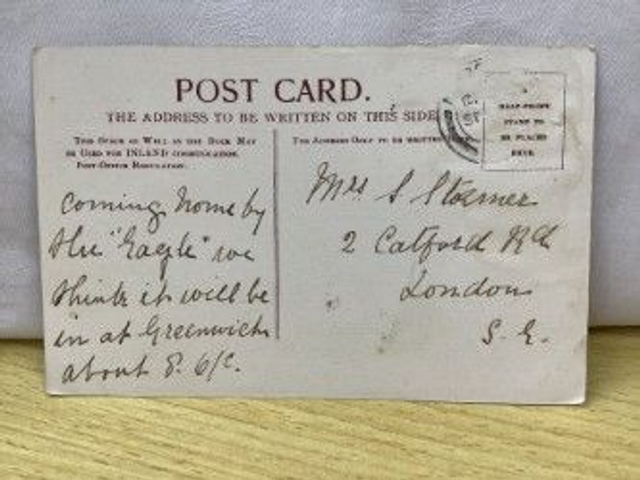 POST CARD.
THE ADDRESS TO BE WRITTEN ON THIS SIDE
THIS SPACE AS WELL AS THE BACK MAY
BE USED FOR INLAND COMMUNICATION.
POST-OFFICE REGULATION.
THE ADDRESS ONLY TO BE WRITTEN
HALF-PENNY
STAMP TO
BE PLACED
HERE
coming home by
the "Eagle" we
think it will be
in at Greenwich
about 8.
Mrs S
2 Catford Rd
London
S. E.